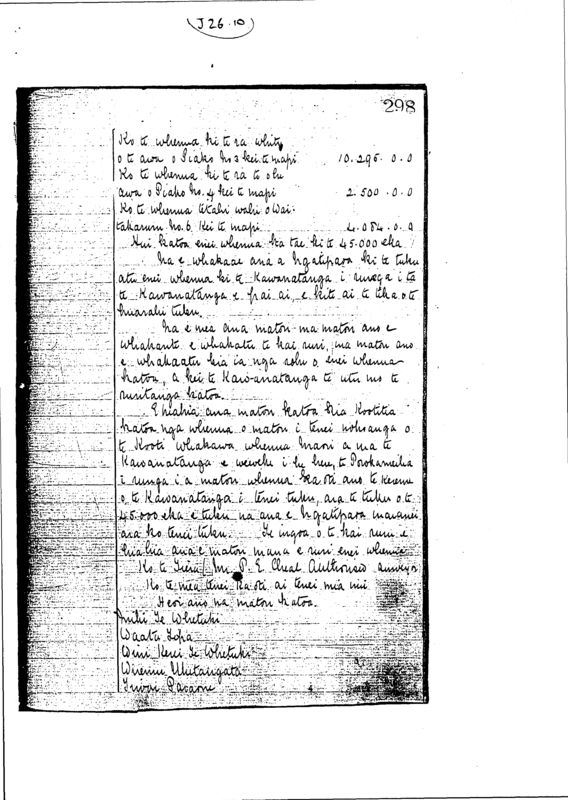 J 26.10
298
Ko te whenua ki te ra whiti
o te awa o Piako No 3 kei te mapi 10.295.0.0
Ko te whenua ki te ra to o te
awa o Piako No. 4 kei te mapi 2.500.0.0
Ko te whenua tetahi wahi o Wai-
takaruru No. 6. Kei te mapi 4.084.0.0
Hui katoa enei whenua ka tae ki te 45.000 eka
Na e whakaae ana a Ngatipaoa ki te tuku
atu enei whenua ki te Kawanatanga i runga i ta
te Kawanatanga e pai ai, e kite ai te tika o te
huarahi tuku.
Na e mea ana matou ma matou ano e
whakatu e te kai ruri, ma matou ano
e whakaatu kia ia nga rohe o enei whenua
katoa, a kei te Kawanatanga te utu mo te
ruritanga katoa.
E hiahia ana matou katoa kia Kootitia
katoa nga whenua o matou i tenei nohoanga o
te Kooti Whakawa whenua Maori a ma te
Kawanatanga e wewete te
i runga i a matou whenua ka oti ano te
o te Kawanatanga i tenei tuku, ara te tuku o te
45.000 eka e tuku na ana e Ngatipaoa inaianei
ara ko tenei tuku. Te ingoa o te kai ruri e
hiahia ana e matou mana e ruri enei whenua
Ko te Tiera Mr. P. E. Cheal Authorised Surveyor
Ko te mea tenei ka oti ai tenei mea nui
Heoi ano na matou katoa.
Te Whetuki
Waata Topa
Wini Kerei Te Whetuki
Wiremu